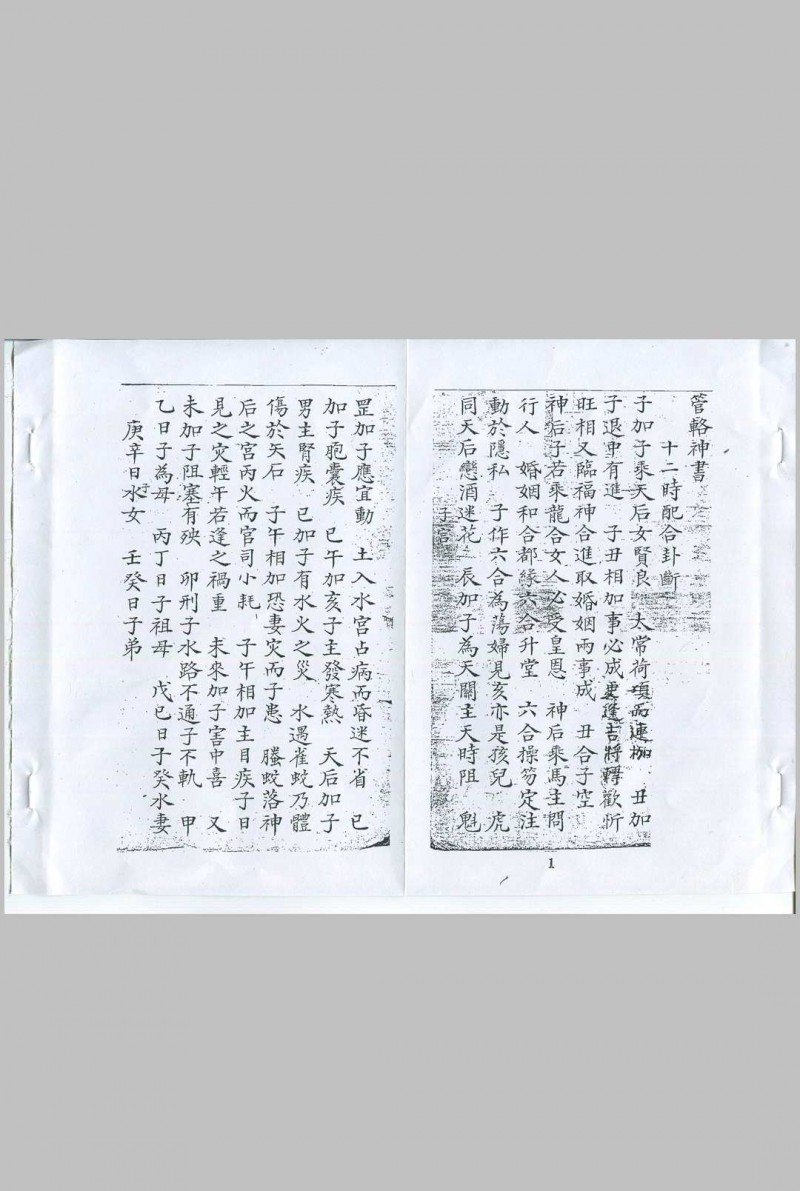 管輅神書
十二時配合卦斷
子加子乘天后女賢良 太常荷項而連枷 丑加
子退中有進 子丑相加事必成要逢吉將轉歡忻
旺相又臨福神合進取婚姻兩事成 丑合子空
神后子若乘龍合女人必受皇恩 神后乘馬主問
行人 婚姻和合都緣六合升堂 六合操笏定注
動於隱私 子作六合為蕩婦見亥亦是孩兒 虎
同天后戀酒迷花 辰加子為天關主天時阻 魁
子宮
1
罡加子應宜動 土入水宮占病而昏迷不省 已
加子胞囊疾 巳午加亥子主發寒熱 天后加子
男主腎疾 已加子有水火之災 水遇雀蚊乃體
傷於矢石 子午相加恐妻灾而子患 螣蚊落神
后之宮丙火而官司小耗 子午相加主目疾子日
見之灾輕午若逢之禍重 未來加子害中喜 又
未加子阻塞有殃 卯刑子水路不通子不軌 甲
乙日子為母 丙丁日子祖母 戊已日子癸水妻
庚辛日水子女 壬癸日子弟